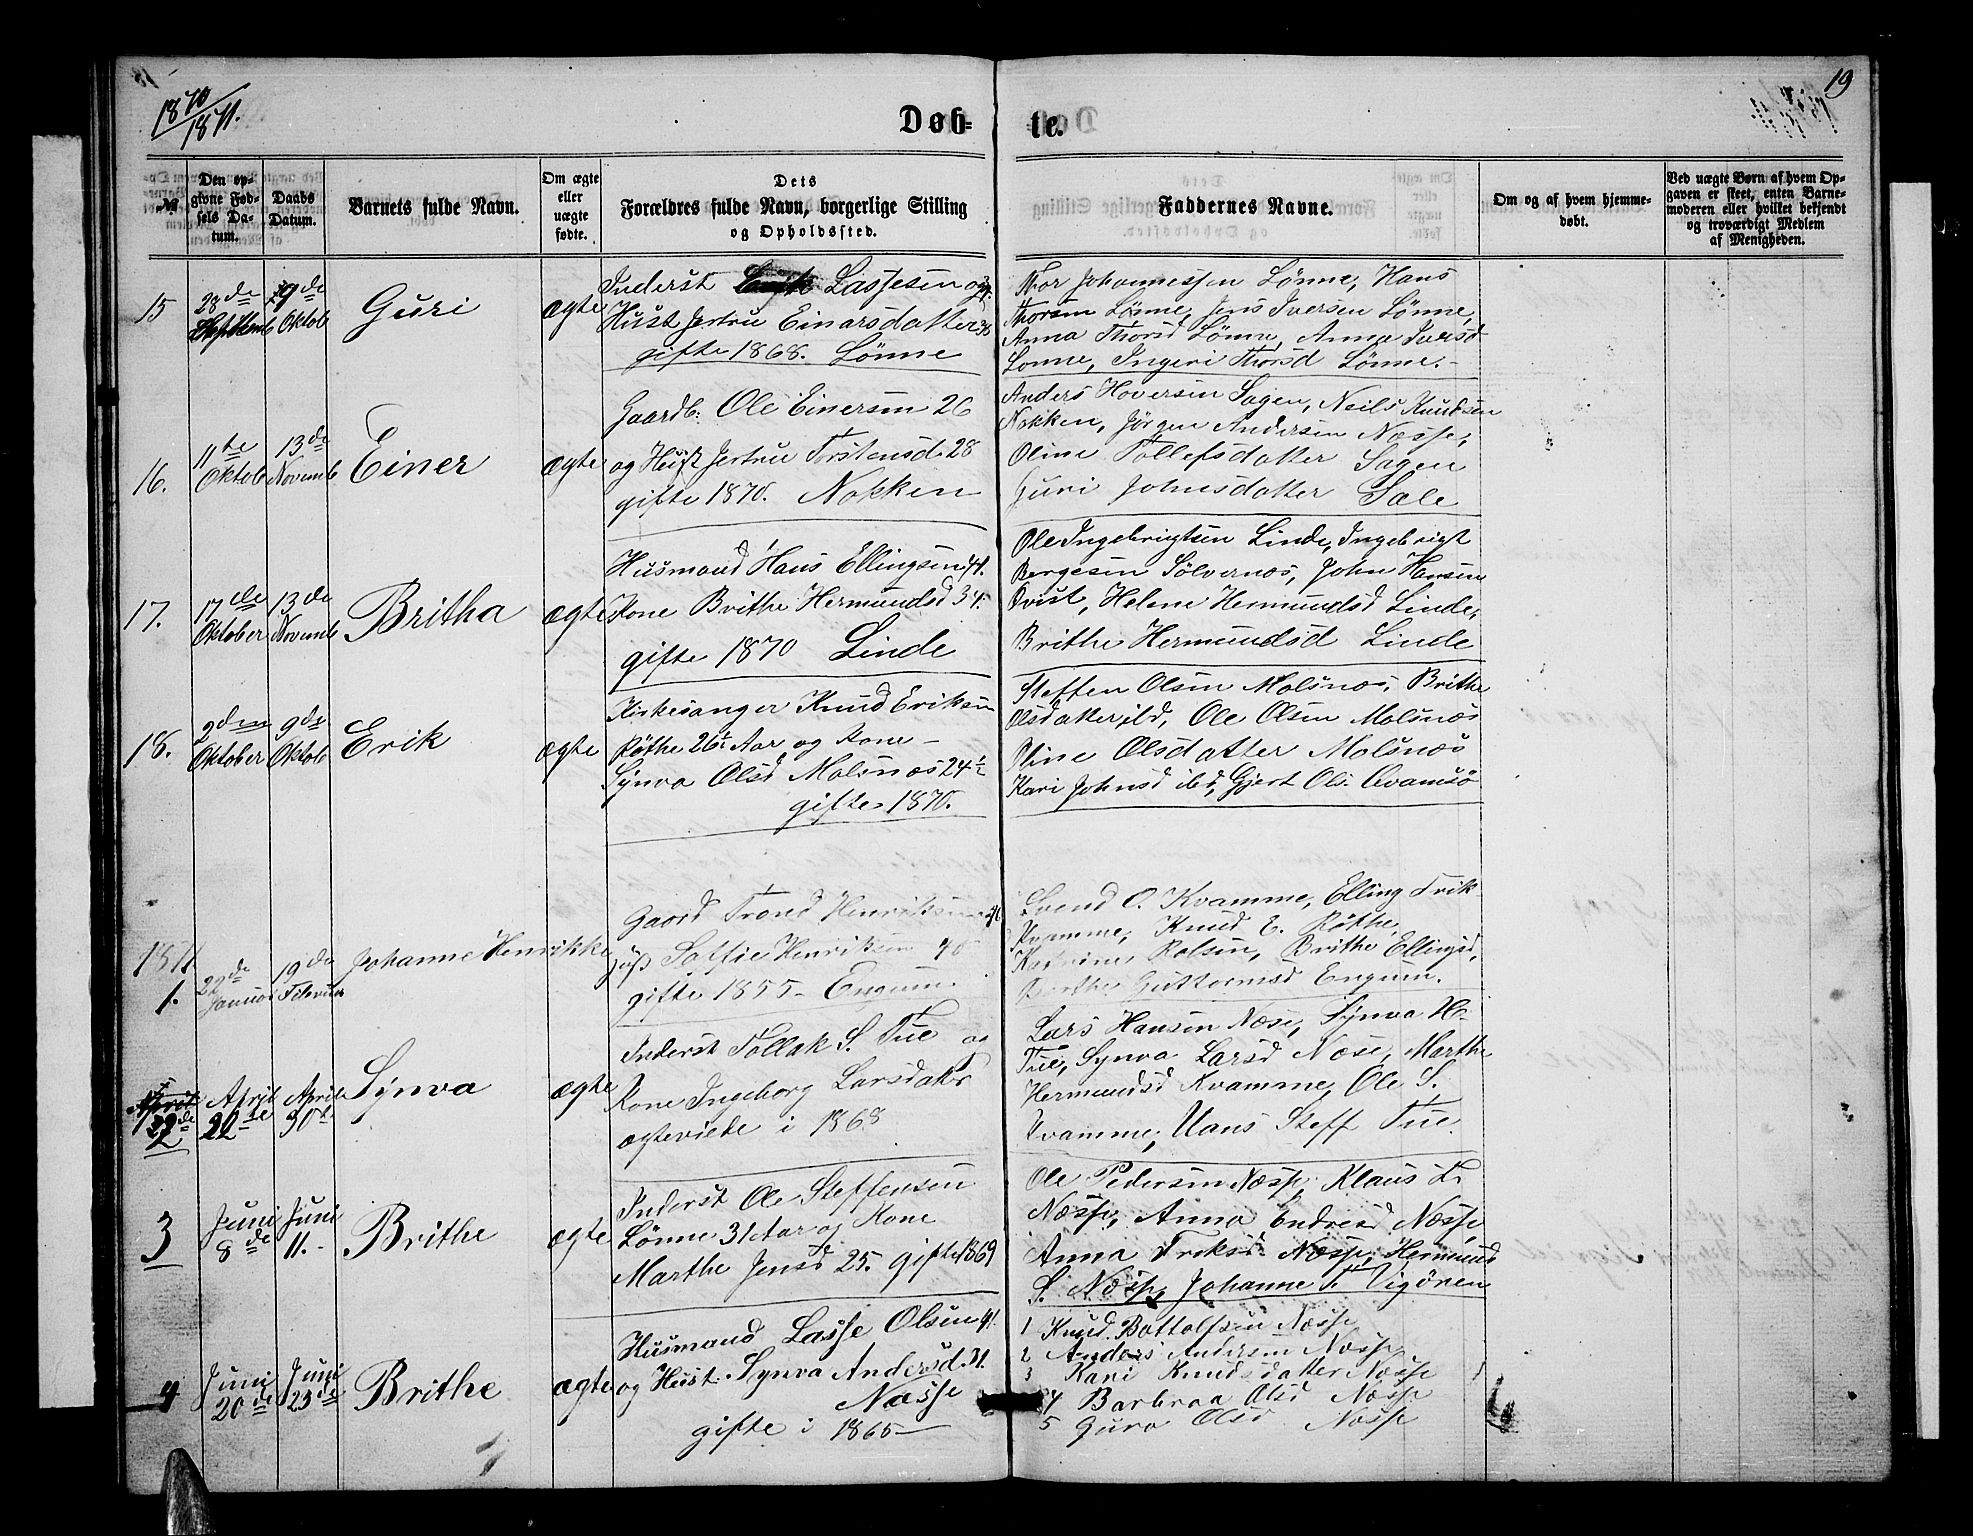 1870/1871.
19
Døb-
te.
№
Den op-
givne Fød-
sels Da-
tum.
Daabs
Datum.
Barnets fulde Navn.
Om ægte
eller
uægte
fødte.
Dets
Forældres fulde Navn, borgerlige Stilling
og Opholdssted.
Faddernes Navne.
Om og af hvem hjemme-
døbt.
Ved uægte Børn af hvem Op-
gaven er skeet, enten Barne-
moderen eller hvilket bekjendt
og troværdigt Medlem
af Menigheden.
15
28de
Septemb
9de
Oktob
Guri
ægte
Inderst Lassesen og
Hust Jertru Einarsdatter
gifte 1868. Lønne
Thor Johannessen Lønne, Hans
Thorsen Lønne, Jens Iversen Lønne,
Anna Thorsd Lønne, Anna Iversd
Lønne, Ingeri Thorsd Lønne.-
16.
11te
Oktob
13de
Novemb
Einer
ægte
Gaardb. Ole Einersen 26
og Hust Jertru Torstensd. 28
gifte 1870. Nokken
Anders Hoversen Sagen, Neils Knudsen
Nokken, Jørgen Andersen Næsse,
Oline Tollefsdatter Sagen
Guri Johnsdatter Sæle
17.
17de
Oktober
13de
Novemb
Britha
ægte
Husmand Hans Ellingsen 41.
Kone Brithe Hermundsd 34.
gifte 1870 Linde
Ole Ingebrigtsen Linde, Ingebrigt
Børgesen Sølvernæs, John Hansen
Qvist, Helene Hermundsd Linde,
Brithe Hermundsd Linde
18.
2den
Oktober
9de
Oktob
Erik
ægte
Kirkesanger Knud Eriksen
Røthe 26½ Aar og Kone -
Synva Olsd Molsnæs 24½
gifte 1870.
Steffen Olsen Molsnæs, Brithe
Olsdatter ibd, Ole Olsen Molsnæs
Oline Olsdatter Molsnæs
Kari Johnsd ibd, Gjert Ols. Qvamsø
1871
1.
22de
Januar
19de
Februar
Johanne Henrikke
Gaard Trond Henriksen
Soffie Henriksen 40
gifte 1855- Engum.
Svend O. Kvamme, Elling Erik
Kvamme, Knud E. Røthe,
Kathrine Rolsen, Brithe Ellingsd,
Berthe Guttormsd Engum.
2
April
22de
April
30t
Synva
ægte
Inderst Tollak S. Tue og
Kone Ingeborg Larsdatr
ægteviede i 1868
Lars Hansen Næse, Synva H.
Tue, Synva Larsd Næse, Marthe
Hermundsd Kvamme, Ole S.
Kvamme, Hans Steff Tue
3
Juni
8de
Juni
11.-
Brithe
ægte
Inderst Ole Steffensen
Lønne 31 Aar og Kone
Marthe Jensd 25. gifte 1869
Ole Pedersen Næsse, Klaus L.
Næsse, Anna Endresd Næsse
Anna Eriksd Næsse, Hermund
S. Næsse, Johanne T. Vigøren
4
Juni
20de
Juni
25de
Brithe
ægte
Husmand Lasse Olsen 41.
og Hust. Synva Andersd. 31.
Næsse
gifte i 1865-
1 Knud Bottolfsen Næsse
2 Anders Andersen Næsse
3 Kari Knudsdatter Næsse
4 Barbraa Olsd Næsse
5 Guro Olsd Næsse